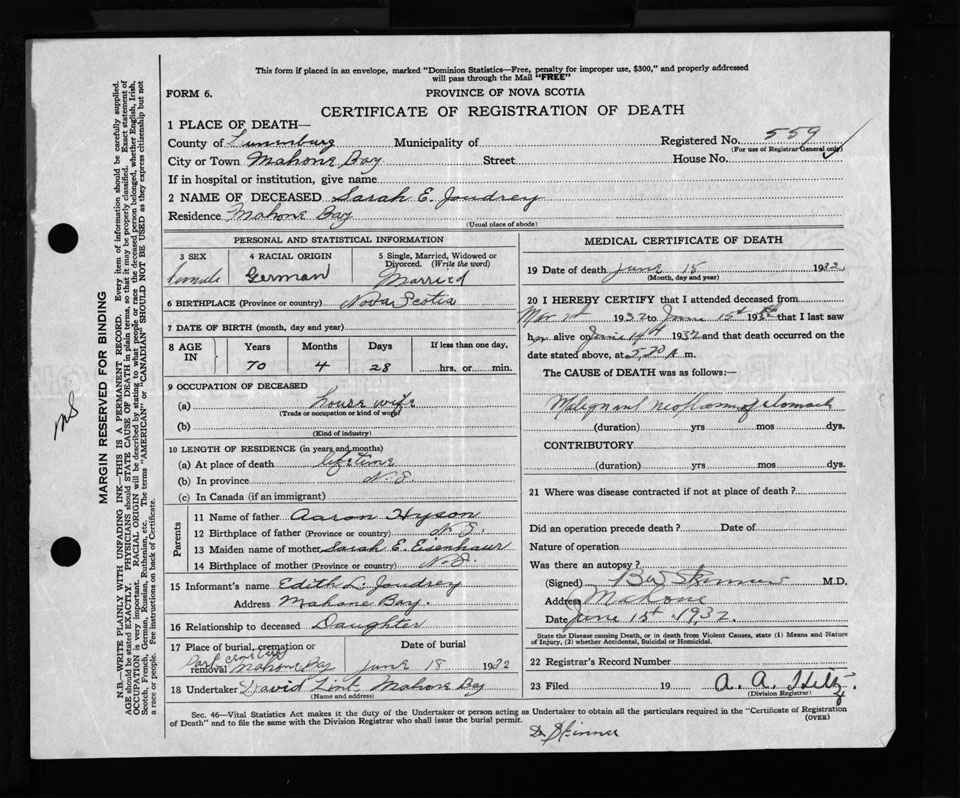 This form if placed in an envelope, marked "Dominion Statistics—Free, penalty for improper use, $300," and properly addressed
will pass through the Mail "FREE"
FORM 6.
PROVINCE OF NOVA SCOTIA
CERTIFICATE OF REGISTRATION OF DEATH
1 PLACE OF DEATH—
County of Lunenburg Municipality of Registered No. 559
(For use of Registrar General only)
City or Town Mahone Bay Street House No.
If in hospital or institution, give name
2 NAME OF DECEASED Sarah E. Joudrey
Residence Mahone Bay
(Usual place of abode)
PERSONAL AND STATISTICAL INFORMATION
3 SEX 4 RACIAL ORIGIN 5 Single, Married, Widowed or
Divorced. (Write the word)
female German Married
6 BIRTHPLACE (Province or country) Nova Scotia
7 DATE OF BIRTH (month, day and year)
8 AGE IN Years Months Days If less than one day,
70 4 28 hrs. or min.
9 OCCUPATION OF DECEASED
(a) house wife
(Trade or occupation or kind of work)
(b)
(Kind of industry)
10 LENGTH OF RESIDENCE (in years and months)
(a) At place of death lifetime
(b) In province N.S.
(c) In Canada (if an immigrant)
Parents
11 Name of father Aaron Hyson
12 Birthplace of father (Province or country) N.S.
13 Maiden name of mother Sarah E. Eisenhaur
14 Birthplace of mother (Province or country) N.S.
15 Informant's name Edith L. Joudrey
Address Mahone Bay.
16 Relationship to deceased Daughter
17 Place of burial, cremation or Date of burial
removal Park Cemetery Mahone Bay June 18 1932
18 Undertaker David Mahone Bay
(Name and address)
MEDICAL CERTIFICATE OF DEATH
19 Date of death June 15 1932
(Month, day and year)
20 I HEREBY CERTIFY that I attended deceased from
Mar 1st 1932 to June 15th 193 that I last saw
her alive on June 14th 1932 and that death occurred on the
date stated above, at 5.30 A.m.
The CAUSE of DEATH was as follows:—
Malignant neoplasm of stomach
(duration) yrs mos dys.
CONTRIBUTORY
(duration) yrs mos dys.
21 Where was disease contracted if not at place of death?
Did an operation precede death? Date of
Nature of operation
Was there an autopsy?
(Signed) Skinner M.D.
Address Mahone
Date June 15th 1932.
State the Disease causing Death, or in death from Violent Causes, state (1) Means and Nature
of Injury, (2) whether Accidental, Suicidal or Homicidal.
22 Registrar's Record Number
23 Filed 19 A. A.
(Division Registrar)
Sec. 46—Vital Statistics Act makes it the duty of the Undertaker or person acting as Undertaker to obtain all the particulars required in the "Certificate of Registration
of Death" and to file the same with the Division Registrar who shall issue the burial permit.
(OVER)
Dr Skinner
MARGIN RESERVED FOR BINDING
N.B.—WRITE PLAINLY WITH UNFADING INK—THIS IS A PERMANENT RECORD. Every item of information should be carefully supplied.
AGE should be stated EXACTLY. PHYSICIANS should STATE CAUSE OF DEATH in plain terms, so that it may be properly classified. Exact statement of
OCCUPATION is very important. RACIAL ORIGIN will be described by stating to what people or race the deceased person belonged, whether English, Irish,
Scotch, French, German, Russian, Ruthenian, etc. The terms "AMERICAN" or "CANADIAN" SHOULD NOT BE USED as they express citizenship but not
a race or people. See instructions on back of Certificate.